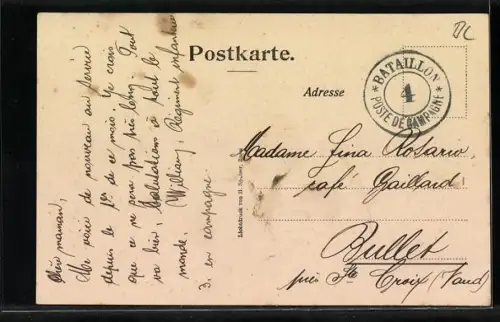 Chère maman,
Me voici de nouveau au service
depuis le 1er de ce mois. Je crois
que ce ne sera pas très long. Tout
va bien. Salutations à tout le
monde. William, Régiment infanterie
3. en campagne.
Postkarte.
Adresse
BATAILLON
4
* POSTE DE CAMPAGNE *
Madame Lina Rosario,
café Gaillard
Bullet
près Ste Croix (Vaud)
Lichtdruck von H.